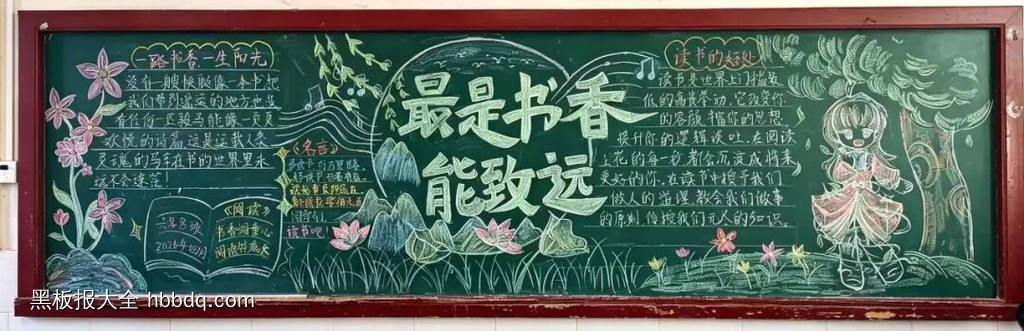 一路书香一生阳光
没有一艘快艇像一本书把
我们带到遥远的地方也没
有任何一匹骏马能像一页页
欢悦的诗篇这是运载人类
灵魂的马车在书的世界里永
远不会迷茫！
《阅读》
书香润童心
阅读伴成长
《名言》
多读书
行万里路
读书吧！
最是书香
能致远
读书的好处
读书是世界上门槛至
低的高贵举动，它改变你
的容颜
你的思想
提升你的逻辑谈吐，在阅读
上花的每一秒都会沉淀成将来
更好的你，在读书中授予我们
做人的道理，教会我们做事
的原则，传授我们无人的知识。
黑板报大全 hbbdq.com